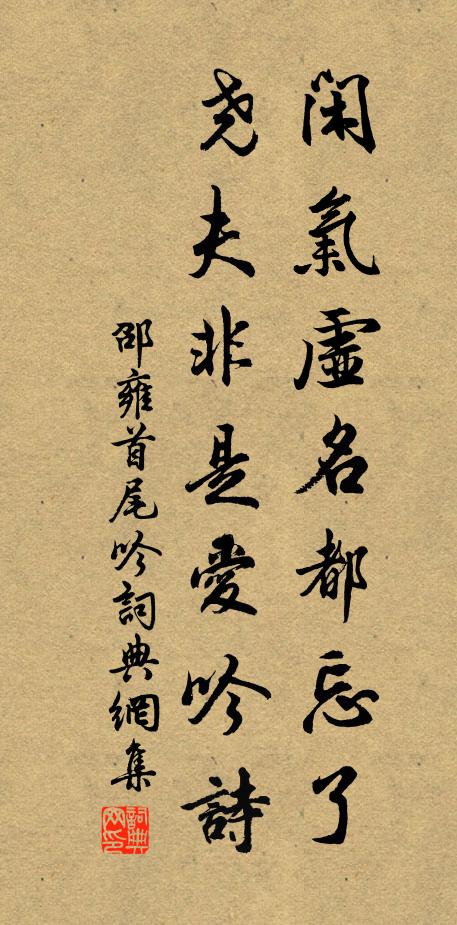 閑氣虛名都忘了
堯夫非是愛吟詩
邵雍首尾吟詞典網集
詞典网印